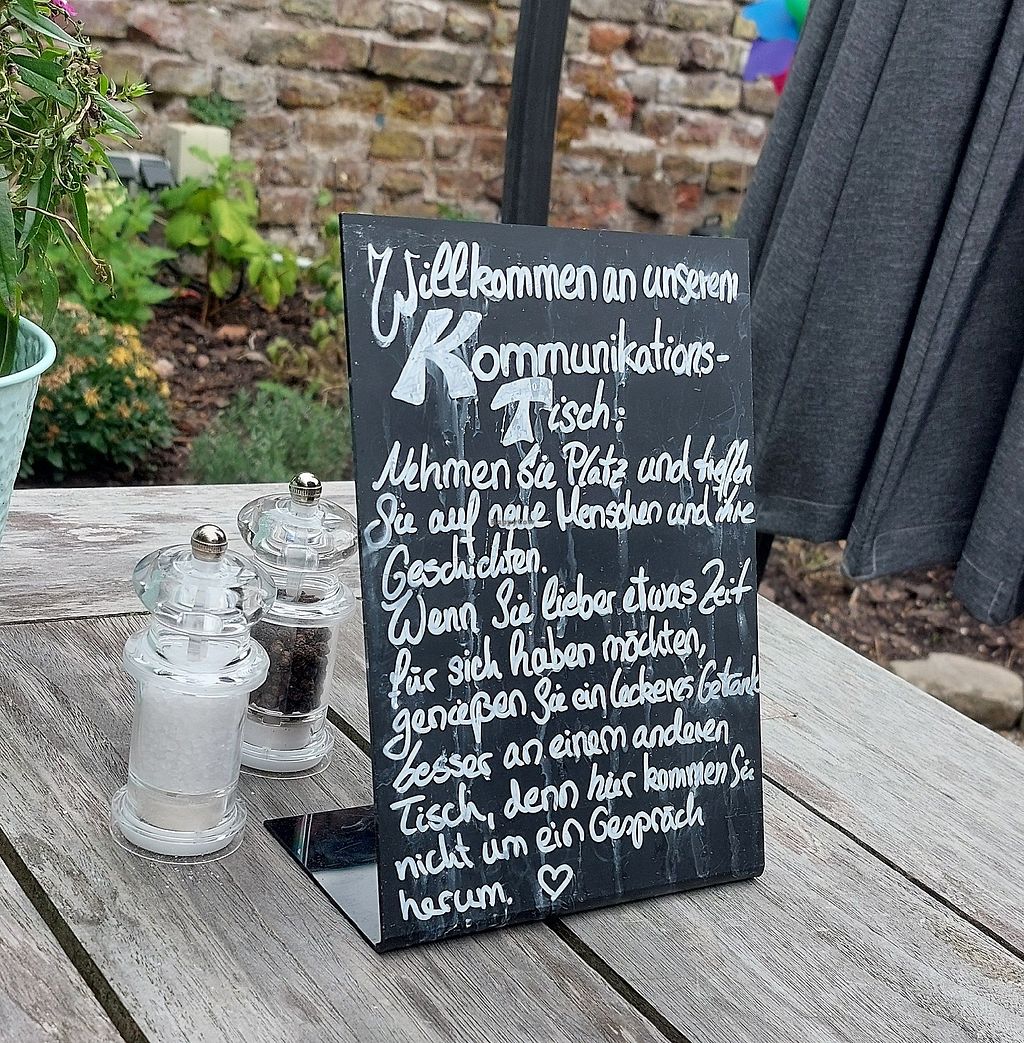 Willkommen an unserem
Kommunikations-
Tisch:
Nehmen Sie Platz und treffen
Sie auf neue Menschen und ihre
Geschichten.
Wenn Sie lieber etwas Zeit
für sich haben möchten,
genießen Sie ein leckeres Getränk
besser an einem anderen
Tisch, denn hier kommen Sie
nicht um ein Gespräch
herum. ♡